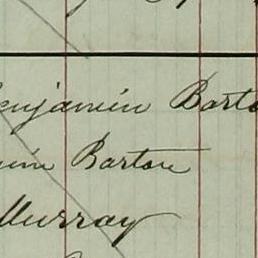 enjamin Barto
min Barton
Murray